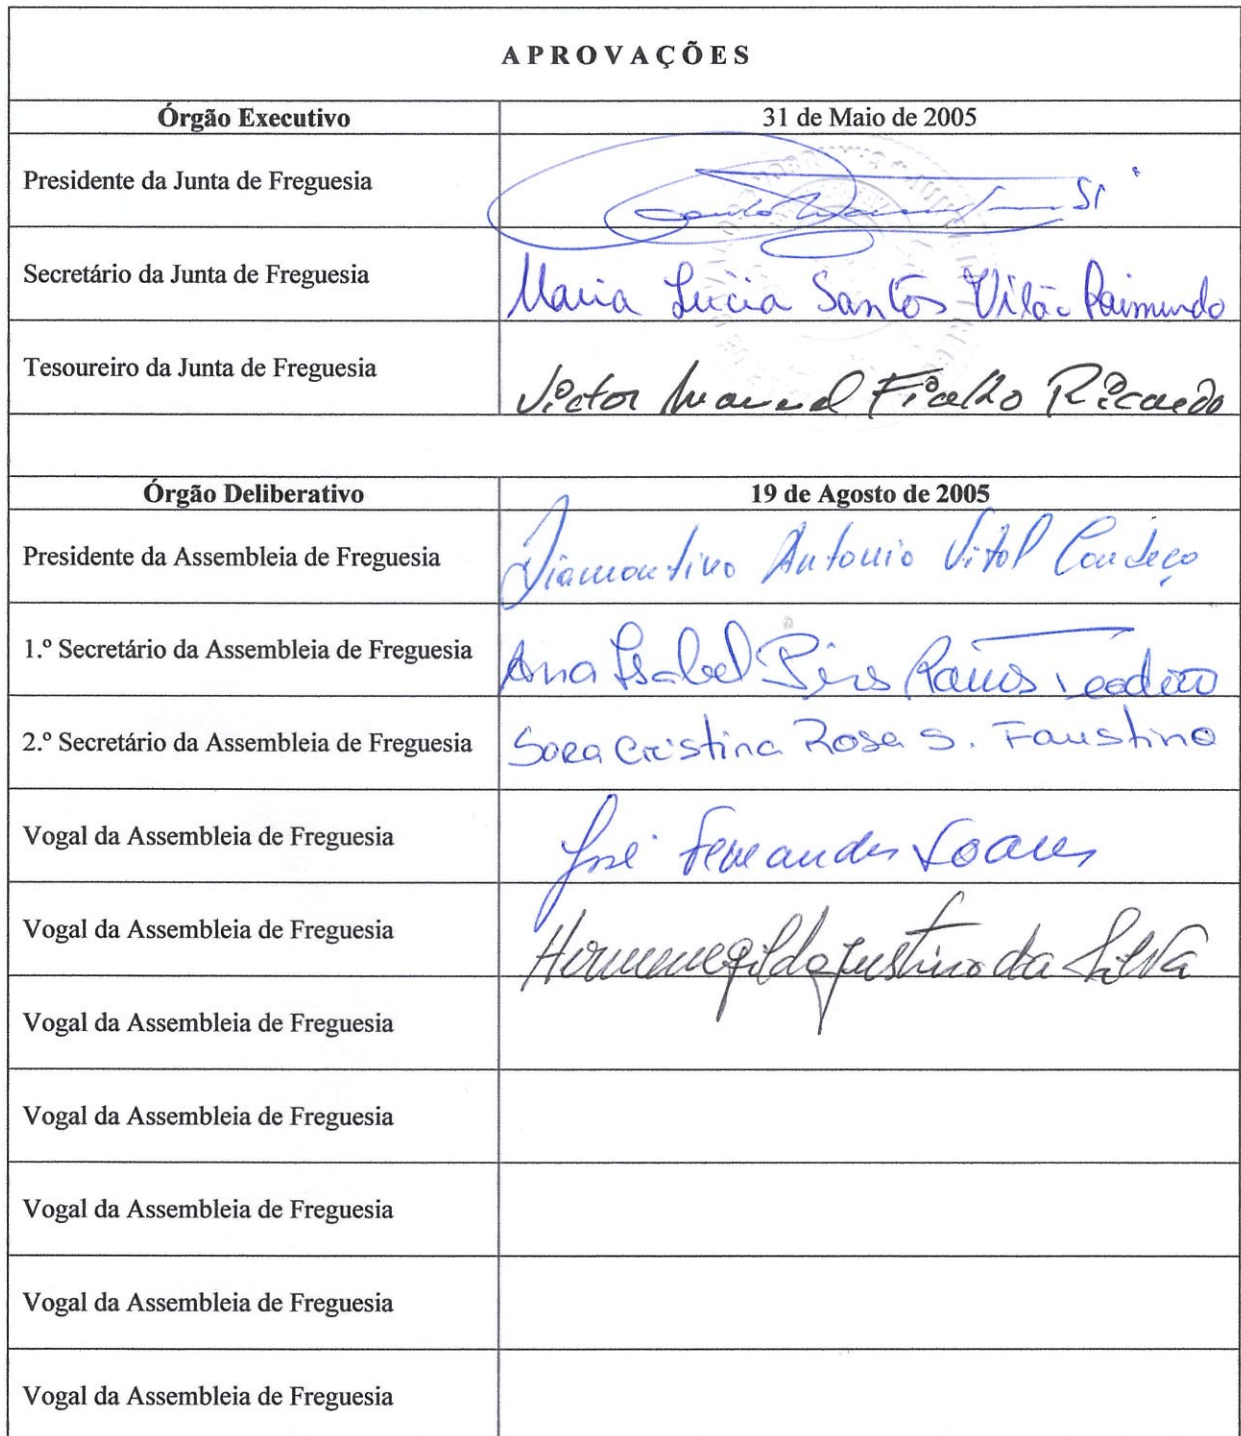 APROVAÇÕES
Órgão Executivo 31 de Maio de 2005
Presidente da Junta de Freguesia
Secretário da Junta de Freguesia Maria Lúcia Santos Vilão Raimundo
Tesoureiro da Junta de Freguesia Victor Manuel Fialho Ricardo
Órgão Deliberativo 19 de Agosto de 2005
Presidente da Assembleia de Freguesia Diamantino Antonio Vital Condeço
1.º Secretário da Assembleia de Freguesia Ana Isabel Pires Ramos
2.º Secretário da Assembleia de Freguesia Sara Cristina Rosa S. Faustino
Vogal da Assembleia de Freguesia José Fernandes Soares
Vogal da Assembleia de Freguesia Hermenegildo Justino da Silva
Vogal da Assembleia de Freguesia
Vogal da Assembleia de Freguesia
Vogal da Assembleia de Freguesia
Vogal da Assembleia de Freguesia
Vogal da Assembleia de Freguesia